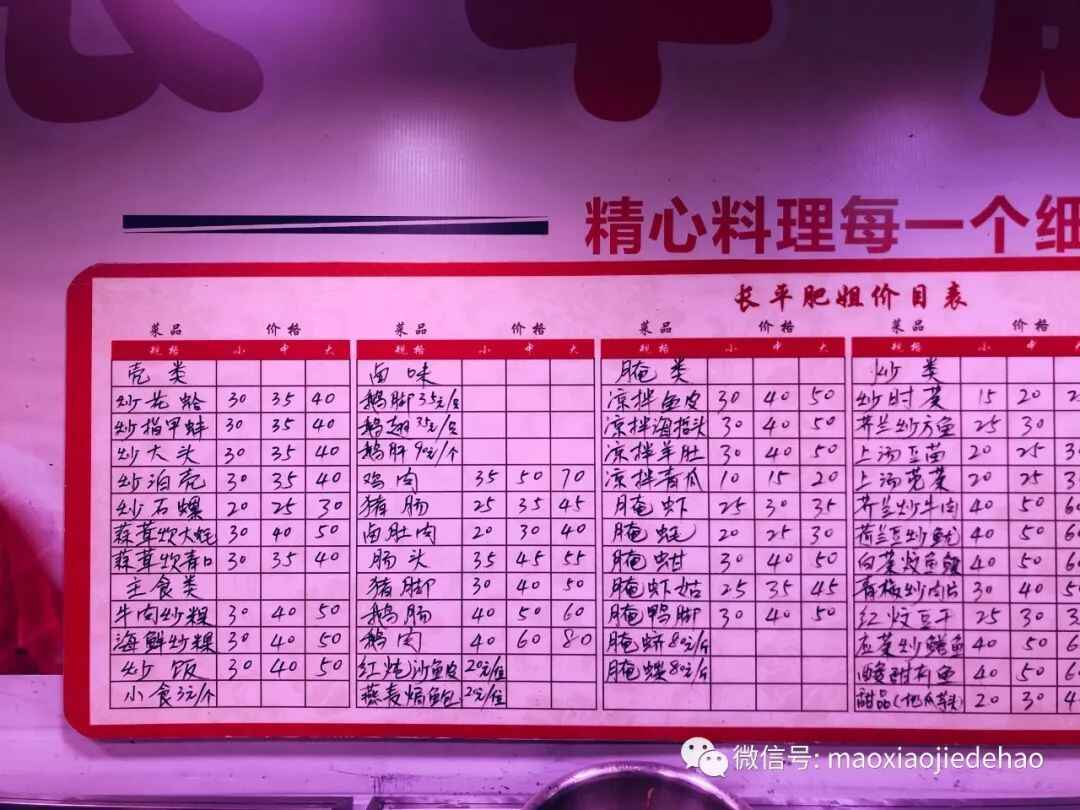 精心料理每一个细
长平肥姐价目表
菜品 价格
规格 小 中 大
壳类
炒花蛤 30 35 40
炒指甲蚌 30 35 40
炒大头 30 35 40
炒泊壳 30 35 40
炒石螺 20 25 30
蒜茸炊大蚝 30 40 50
蒜茸炊青口 30 35 40
主食类
牛肉炒粿 30 40 50
海鲜炒粿 30 40 50
炒饭 30 40 50
小食 3元/个
菜品 价格
规格 小 中 大
卤味
鹅脚 35元/只
鹅翅 35元/只
鹅肝 90元/个
鸡肉 35 50 70
猪肠 25 35 45
卤肚肉 20 30 40
肠头 35 45 55
猪脚 30 40 50
鹅肠 40 50 60
鹅肉 40 60 80
红炖沙鱼皮 20元/位
燕麦焗鲍 12元/位
菜品 价格
规格 小 中 大
腌类
凉拌鱼皮 30 40 50
凉拌海指头 30 40 50
凉拌羊肚 30 40 50
凉拌青瓜 10 15 20
腌虾 25 30 35
腌蚝 20 25 30
腌蚶 30 40 50
腌虾姑 25 35 45
腌鸭脚 30 40 50
腌蛴 80元/斤
腌蟛 80元/斤
菜品 价格
规格 小 中 大
炒类
炒时菜 15 20
芥兰炒方鱼 25 30
上汤豆苗 20 25
上汤苋菜 20 25
芥兰炒牛肉 40 50
荷兰豆炒鱿 40 50
白菜炆鱼鳔 40 50
青椒炒肉片 30 40
红炆豆干 25 30
豆菜炒鳝鱼 40 50
酸甜右鱼 40 50
甜品(地瓜芋头) 20 30
微信号: maoxiaojiedehao